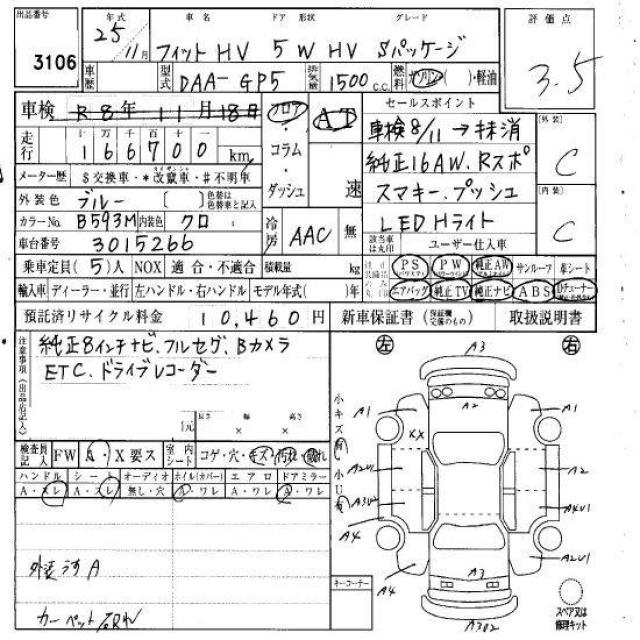 出品番号 年式 車名 ドア 形状 グレード 評価点
3106 25 11月 フィットHV 5W HV Sパッケージ 3.5
車歴 型式 DAA-GP5 排気量 1500 c.c. 燃料 ガソリン( )・軽油
車検 R8年 11月 18日 フロア AT セールスポイント
走行 十万 万 千 百 十 一
166700 km
・コラム・ダッシュ 速
車検8/11→抹消
純正16AW、Rスポ
スマキー、プッシュ
LEDHライト
[外装] C
[内装] C
メーター歴 $交換車・*改竄車・#不明車
外装色 ブルー 〔 〕色替は色替車と記入
カラーNo. B593M 内装色 クロ
車台番号 3015266
冷房 AAC 無
該当車は丸印 ユーザー仕入車
乗車定員(5)人 NOX 適合・不適合 積載量 kg
PS PW 純正AW サンルーフ 革シート
輸入車 ディーラー・並行 左ハンドル・右ハンドル モデル年式( )年
エアバッグ 純正TV 純正ナビ ABS
預託済リサイクル料金 10,460円 新車保証書 (保証継続可のもの) 取扱説明書
注意事項(出品店記入)
純正8インチナビ、フルセグ、Bカメラ
ETC、ドライブレコーダー
〔元 長さ × 幅 × 高さ
左 右
検査員記入 FW A・X要ス 室内シート コゲ・穴・キズ・汚れ・破れ
ハンドル シート オーディオ ホイル(カバー) エアロ ドアミラー
A・スレ A・スレ 無し・穴 A・ワレ A・ワレ A・ワレ
外装うすA
カーペット破れ
小キズ有 小U有
A3
A1 A2 A1
XX
A2U1 A2
A3U2 A4U1
A4 A2U1
A4 A3
A3U2
キーコーナー
スペア又は修理キット